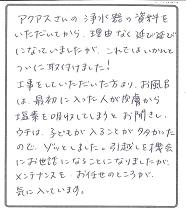 アクアスさんの浄水器の資料を
いただいてから、理由なく延び延び
になっていましたが、これではいかんと
ついに取付けました！
工事をしていただいた方より、お風呂
は、最初に入った人が皮膚から
塩素を吸収してしまうとお聞きし、
ウチは、子どもが入ることが多かった
ので、ゾッとしました。引越しを機会
にお世話になることになりましたが、
メンテナンスを、お任せのところが、
気に入っています。